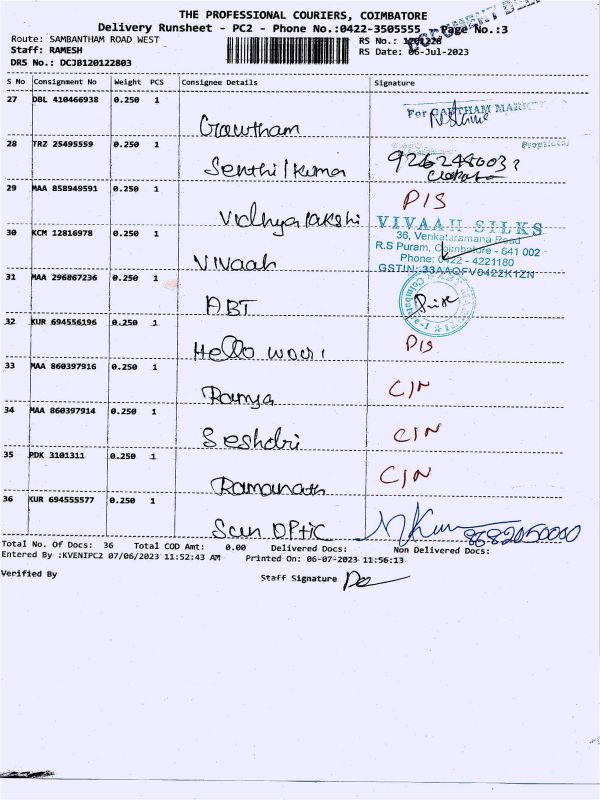 THE PROFESSIONAL COURIERS, COIMBATORE
Delivery Runsheet - PC2 - Phone No.:0422-3505555 Page No.:3
Route: SAMBANTHAM ROAD WEST RS No.: 1201228
Staff: RAMESH RS Date: 06-Jul-2023
DRS No.: DCJB120122803
S No Consignment No Weight PCS Consignee Details Signature
27 DBL 410466938 0.250 1 Gowtham For GAUTHAM MARKE
28 TRZ 25495559 0.250 1 Senthil kumar Proprietor
29 MAA 858949591 0.250 1 Vidhyalakshi P/S
30 KCM 12816978 0.250 1 Vivaah
VIVAAH SILKS
36, Venkataramana Road
R.S Puram, Coimbatore - 641 002
Phone: 0422 - 4221180
GSTIN: 33AAQFV0422K1ZN
31 MAA 296867236 0.250 1 ABT
32 KUR 694556196 0.250 1 Hello P/S
33 MAA 860397916 0.250 1 Ramya C/N
34 MAA 860397914 0.250 1 Seshdri C/N
35 PDK 3101311 0.250 1 Ramanath C/N
36 KUR 694555577 0.250 1 Scan OPtic
Total No. Of Docs: 36 Total COD Amt: 0.00 Delivered Docs: Non Delivered Docs:
Entered By :KVENIPC2 07/06/2023 11:52:43 AM Printed On: 06-07-2023 11:56:13
Verified By Staff Signature